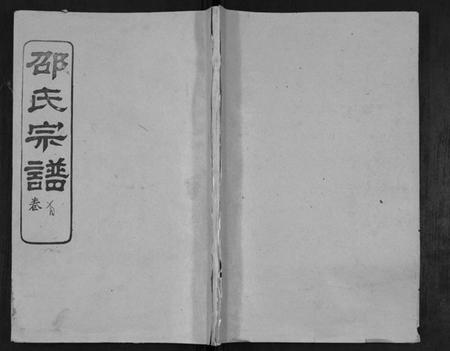 邵氏宗譜
卷首